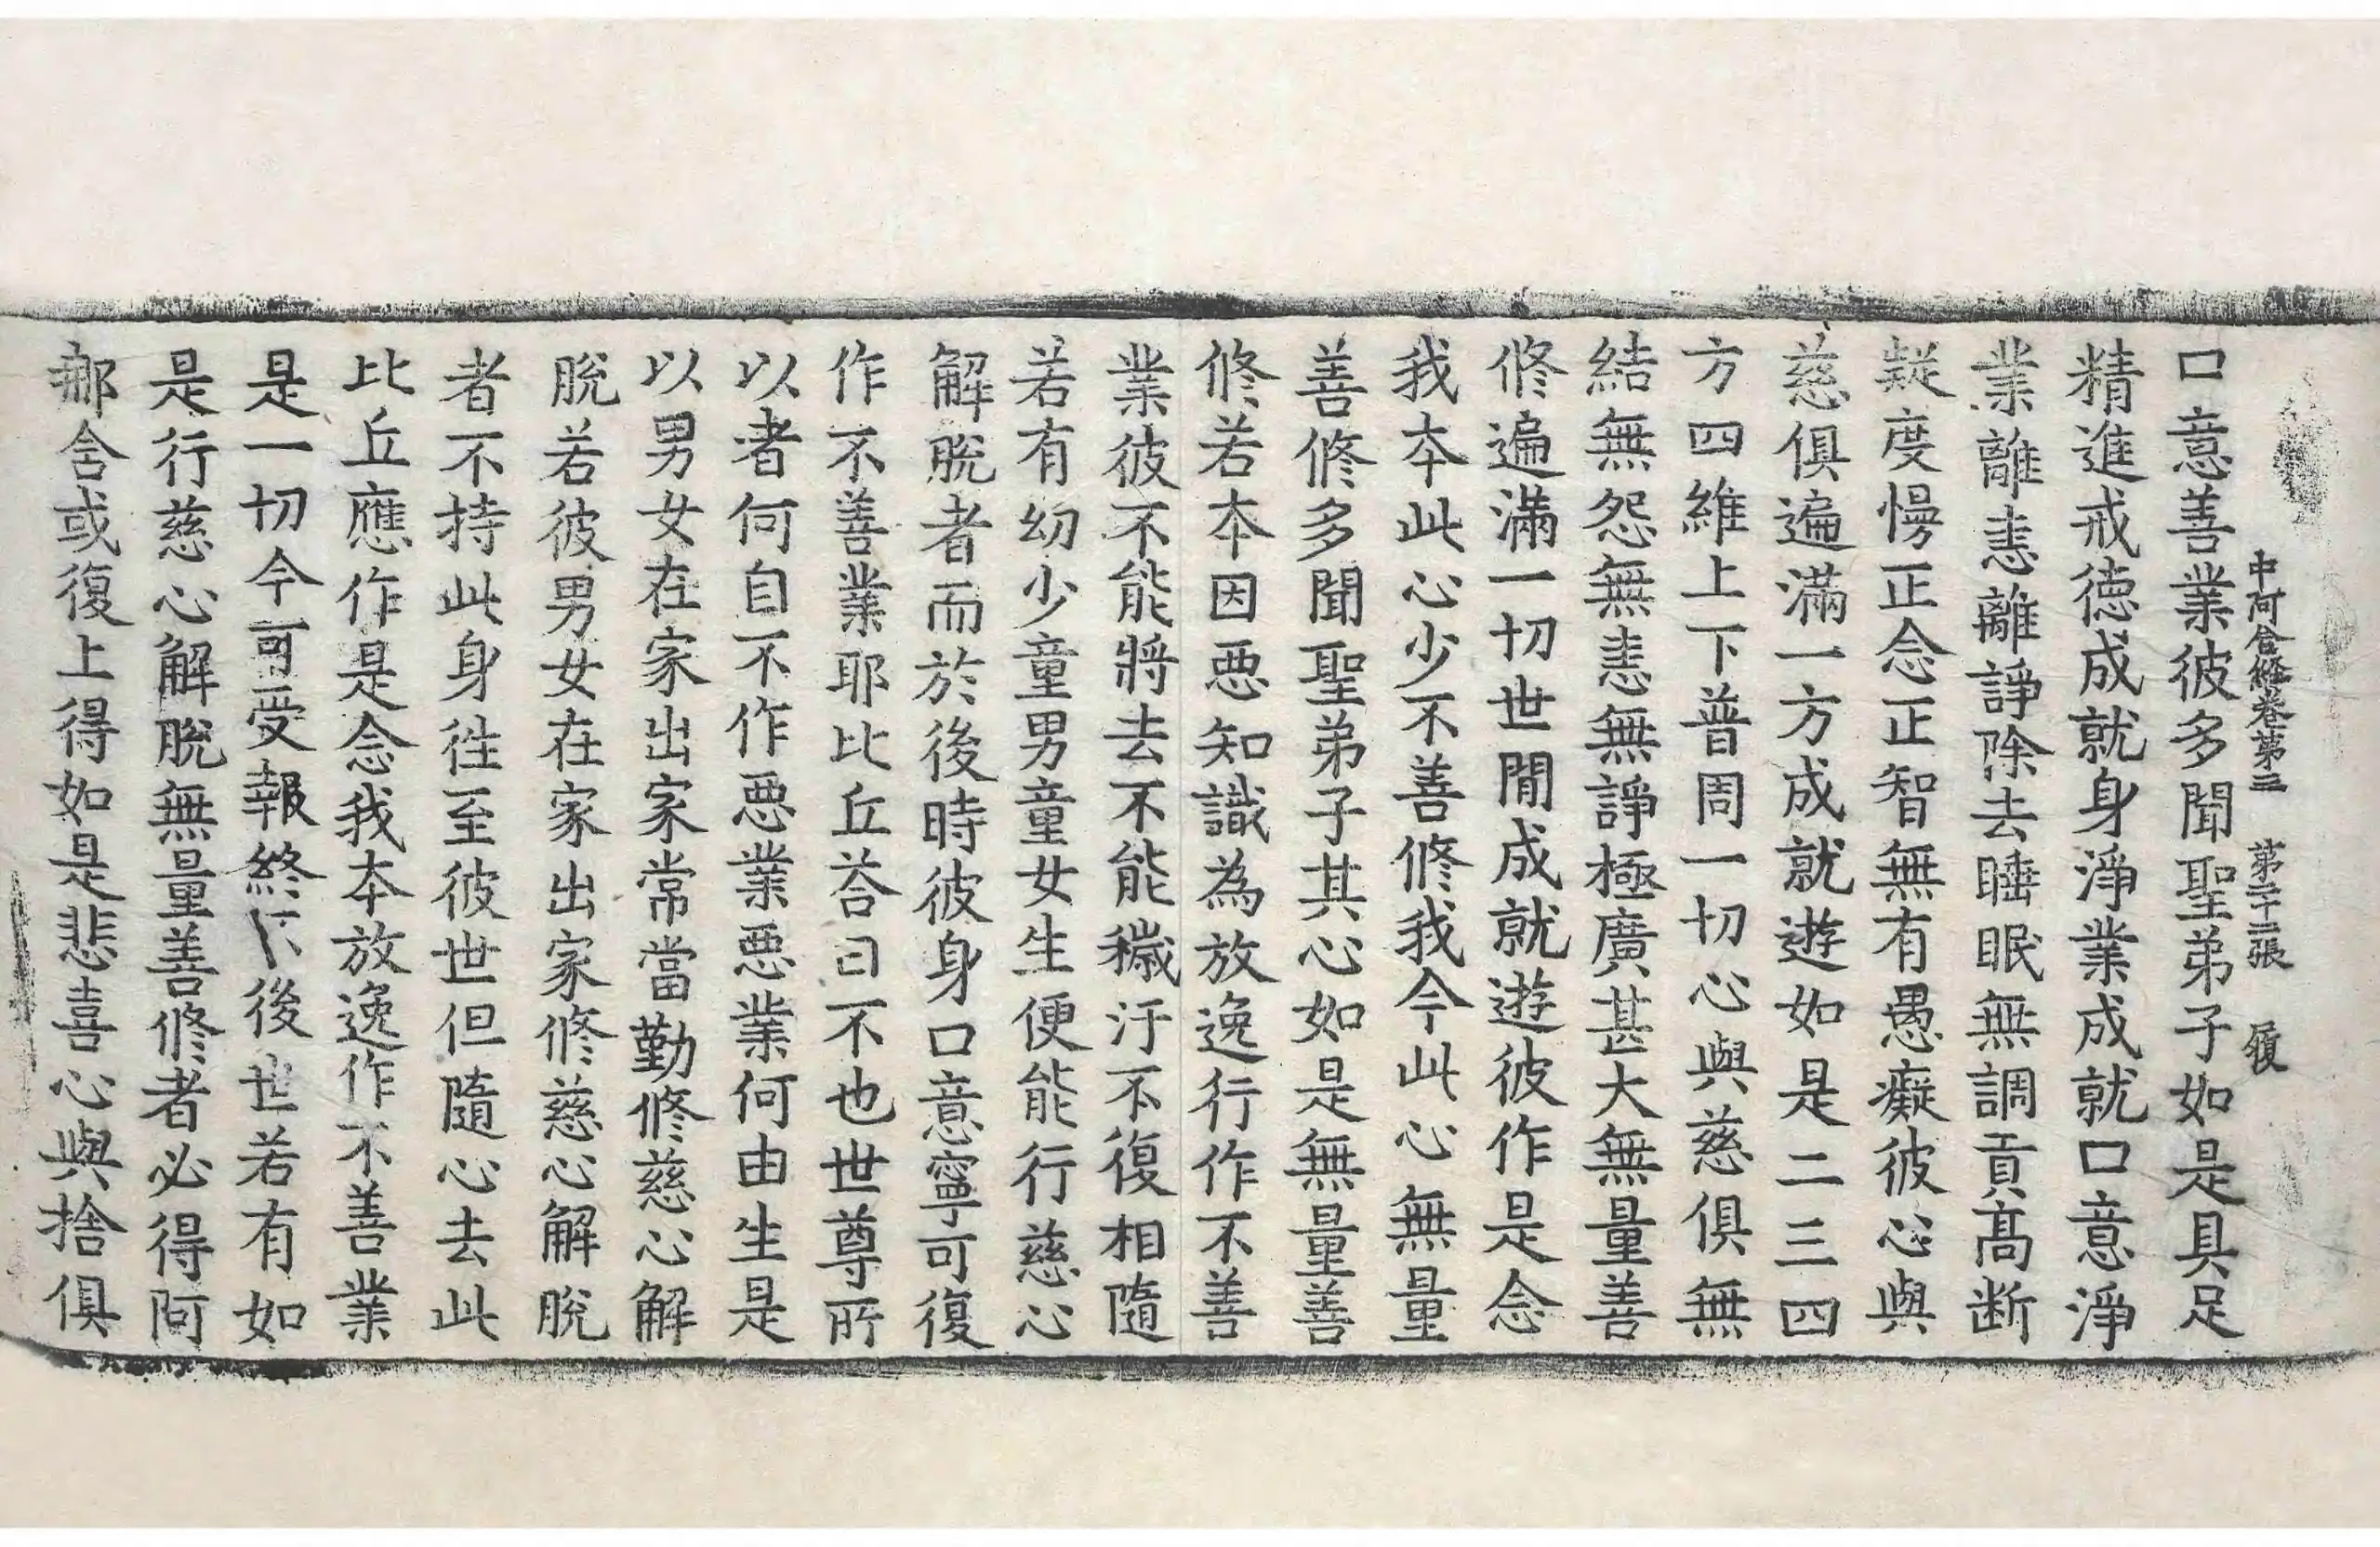 中阿含經卷第三 第二十二張 履
口意善業彼多聞聖弟子如是具足
精進戒德成就身淨業成就口意淨
業離恚離諍除去睡眠無調貢高断
疑度慢正念正智無有愚癡彼心與
慈俱遍滿一方成就遊如是二三四
方四維上下普周一切心與慈俱無
結無怨無恚無諍極廣甚大無量善
修遍滿一切世間成就遊彼作是念
我本此心少不善修我今此心無量
善修多聞聖弟子其心如是無量善
修若本因惡知識為放逸行作不善
業彼不能將去不能穢汙不復相隨
若有幼少童男童女生便能行慈心
解脫者而於後時彼身口意寧可復
作不善業耶比丘荅曰不也世尊所
以者何自不作惡業惡業何由生是
以男女在家出家常當勤修慈心解
脫若彼男女在家出家修慈心解脫
者不持此身往至彼世但隨心去此
比丘應作是念我本放逸作不善業
是一切今可受報終不後世若有如
是行慈心解脫無量善修者必得阿
那含或復上得如是悲喜心與捨俱